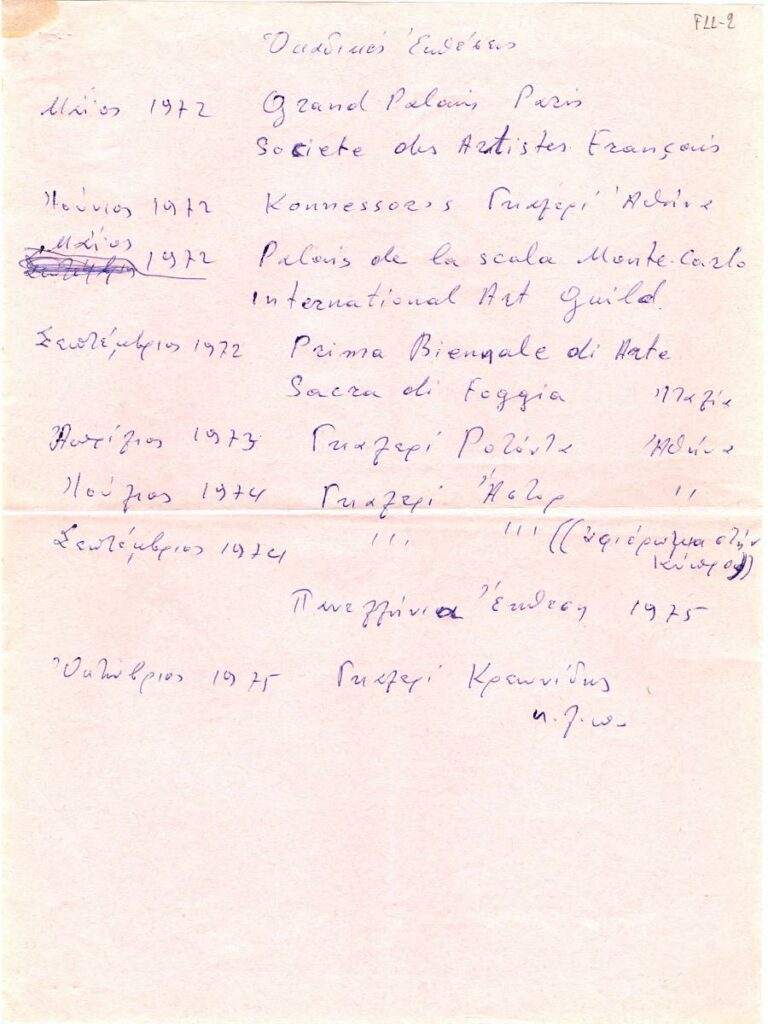 F11-2
Ὁμαδικές Ἐκθέσεις
Μάϊος 1972 Grand Palais Paris
Societe des Artistes Français
Ἰούνιος 1972 Konnessores Γκαλερί Ἀθήνα
Μάϊος
1972 Palais de la scala Monte-Carlo
International Art Guild.
Σεπτέμβριος 1972 Prima Biennale di Arte
Sacra di Foggia Ἰταλία
Ἀπρίλιος 1973 Γκαλερί Ροτόντα Ἀθήνα
Ἰούλιος 1974 Γκαλερί Ἄστορ ,,
Σεπτέμβριος 1974 ,,, ,,, ((Ἀφιέρωμα στήν
Κύπρο))
Πανελλήνια Ἔκθεση 1975
Ὀκτώβριος 1975 Γκαλερί Κρεωνίδης
κ.λ.π.